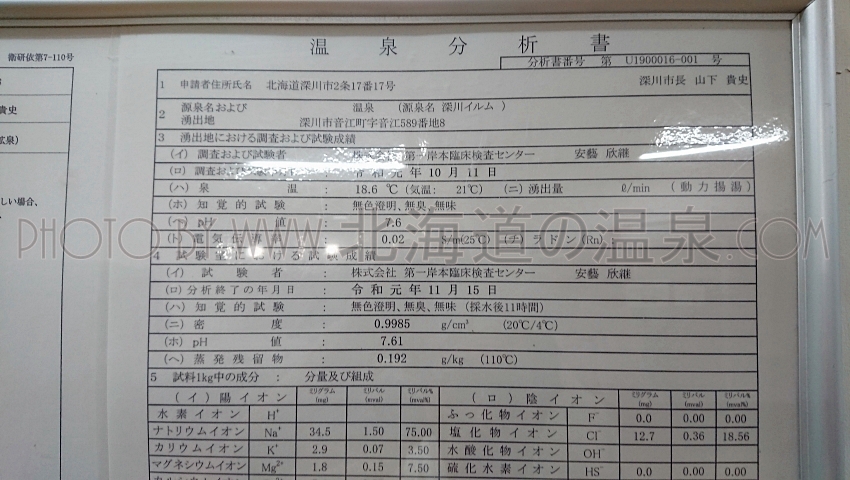 衛研依第7-110号
貴史
温泉分析書
分析書番号 第 U1900016-001 号
1 申請者住所氏名 北海道深川市2条17番17号 深川市長 山下 貴史
2 源泉名および 湧出地 温泉 (源泉名 深川イルム )
深川市音江町字音江589番地8
3 湧出地における調査および試験成績
(イ) 調査および試験者 : 第一岸本臨床検査センター 安藝 欣継
(ロ) 調査および : 令和元年10月11日
(ハ) 泉温 : 18.6 ℃ (気温: 21℃) (ニ) 湧出量 ℓ/min (動力揚湯)
(ホ) 知覚的試験 : 無色澄明、無臭、無味
(ヘ) pH値 : 7.6
(ト) 電気伝導率 : 0.02 S/m(25℃) (チ) ラドン(Rn) :
PHOTO BY WWW.北海道の温泉.COM
4 試験室における試験成績
(イ) 試験者 : 株式会社 第一岸本臨床検査センター 安藝 欣継
(ロ) 分析終了の年月日 : 令和元年11月15日
(ハ) 知覚的試験 : 無色澄明、無臭、無味 (採水後11時間)
(ニ) 密度 : 0.9985 g/cm³ (20℃/4℃)
(ホ) pH値 : 7.61
(ヘ) 蒸発残留物 : 0.192 g/kg (110℃)
5 試料1kg中の成分 : 分量及び組成
(イ) 陽イオン ミリグラム (mg) ミリバル (mval) ミリバル% (mval%) (ロ) 陰イオン ミリグラム (mg) ミリバル (mval) ミリバル% (mval%)
水素イオン H⁺ ふっ化物イオン F⁻ 0.0 0.00 0.00
ナトリウムイオン Na⁺ 34.5 1.50 75.00 塩化物イオン Cl⁻ 12.7 0.36 18.56
カリウムイオン K⁺ 2.9 0.07 3.50 水酸化物イオン OH⁻
マグネシウムイオン Mg²⁺ 1.8 0.15 7.50 硫化水素イオン HS⁻ 0.0 0.00 0.00